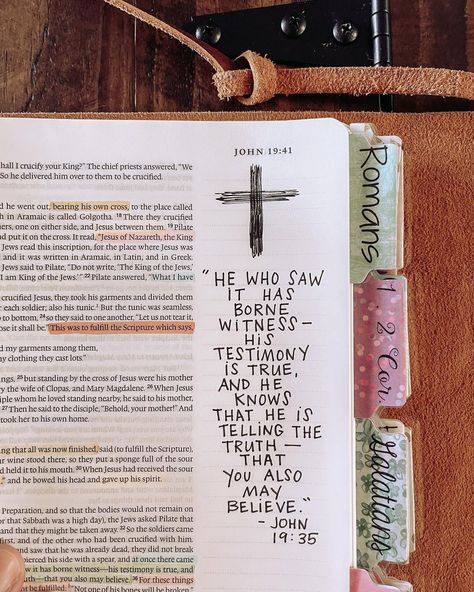 hall I crucify your King?" The chief priests answered, "We
So he delivered him over to them to be crucified.
d he went out, bearing his own cross, to the place called
h in Aramaic is called Golgotha. 18 There they crucified
ers, one on either side, and Jesus between them. 19 Pilate
and put it on the cross. It read, "Jesus of Nazareth, the King
Jews read this inscription, for the place where Jesus
and it was written in Aramaic, in Latin, and in Greek.
Jews said to Pilate, "Do not write, 'The King of the Jews,'
I am King of the Jews.'" 22 Pilate answered, "What I have
crucified Jesus, they took his garments and divided them
each soldier; also his tunic. But the tunic was seamless,
to bottom, 24 so they said to one another, "Let us not tear it,
ose it shall be." This was to fulfill the Scripture which says,
my garments among them,
my clothing they cast lots."
ngs, 25 but standing by the cross of Jesus were his mother
y the wife of Clopas, and Mary Magdalene. 26 When Jesus
iple whom he loved standing nearby, he said to his mother,
27 Then he said to the disciple, "Behold, your mother!" And
took her to his own home.
ng that all was now finished, said (to fulfill the Scripture),
ur wine stood there, so they put a sponge full of the sour
d held it to his mouth. 30 When Jesus had received the sour
" and he bowed his head and gave up his spirit.
Preparation, and so that the bodies would not remain on
or that Sabbath was a high day), the Jews asked Pilate that
and that they might be taken away. 32 So the soldiers came
first, and of the other who had been crucified with him.
and saw that he was already dead, they did not break
pierced his side with a spear, and at once there came
w it has borne witness—his testimony is true, and
uth—that you also may believe. 36 For these things
be fulfilled: "Not one of his bones will be broken."
JOHN 19:41
"HE WHO SAW
IT HAS
BORNE
WITNESS—
HIS
TESTIMONY
IS TRUE,
AND HE
KNOWS
THAT HE IS
TELLING THE
TRUTH—
THAT
YOU ALSO
MAY
BELIEVE."
- JOHN
19:35
Romans
1, 2 Cor
Galatians